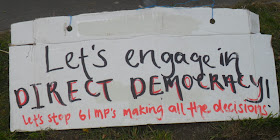 Let's engage in
DIRECT DEMOCRACY!
Let's stop 61 MP's making all the decisions